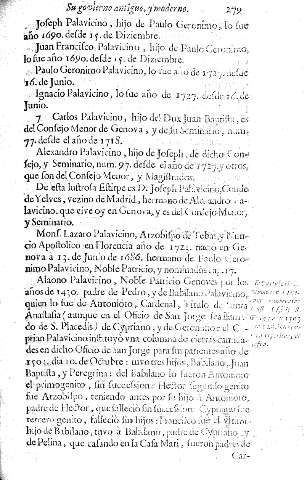 Su govierno antiguo, y moderno. 279
Joseph Palavicino, hijo de Paulo Geronimo, lo fue
año 1690. desde 15. de Diciembre.
Juan Francisco Palavicino, hijo de Paulo Geronimo,
lo fue año 1690. desde 15. de Diciembre.
Paulo Geronimo Palavicino, lo fue año de 1727. desde
16. de Junio.
Ignacio Palavicino, lo fue año de 1727. desde 16. de
Junio.
7 Carlos Palavicino, hijo del Dux Juan Baptista, es
del Consejo Menor de Genova, y de su Seminario, num.
77. desde el año de 1718.
Alexandro Palavicino, hijo de Joseph, de dicho Con-
sejo, y Seminario, num. 97. desde el año de 1727. y otros,
que son del Consejo Menor, y Magistrados.
De esta lustrosa Estirpe es D. Joseph Palavicino, Conde
de Yelves, vezino de Madrid, hermano de Alexandro Pa-
lavicino, que vive oy en Genova, y es del Consejo Menor,
y Seminario.
Mons. Lazaro Palavicino, Arzobispo de Tebas, y Nun-
cio Apostolico en Florencia año de 1723. nació en Ge-
nova à 13. de Junio de 1686. hermano de Paulo Gero-
nimo Palavicino, Noble Patricio, y nominados
Alaono Palavicino, Noble Patricio Genovès por los
años de 1430. padre de Pedro, y de Babilano Palavicino,
quien lo fue de Antonioto, Cardenal, titulo de Santa
Anastasia (aunque en el Oficio de San Jorge
do de S. Placedis) de Cypriano, y de Geronimo: el Cy-
prian Palavicino instituyò una columna de ciertas canti-
dades en dicho Oficio de San Jorge para sus parientes año de
de Octubre: tuvo tres hijos, Babilano, Juan
Baptista, y Peregrina: del Babilano lo fueron Antonioto
el primogenito, sin succession: Hector segundo genito
fue Arzobispo, teniendo antes por su hijo à Antonioto,
padre de Hector, que falleciò sin succession: Cypriano
tercero genito, falleciò sin hijos: Francisco fue el
hijo de Babilano, tuvo à Babilano, padre de Cypriano, y
de Pelina, que casando en la Casa Mari, fueron padres de
Car-